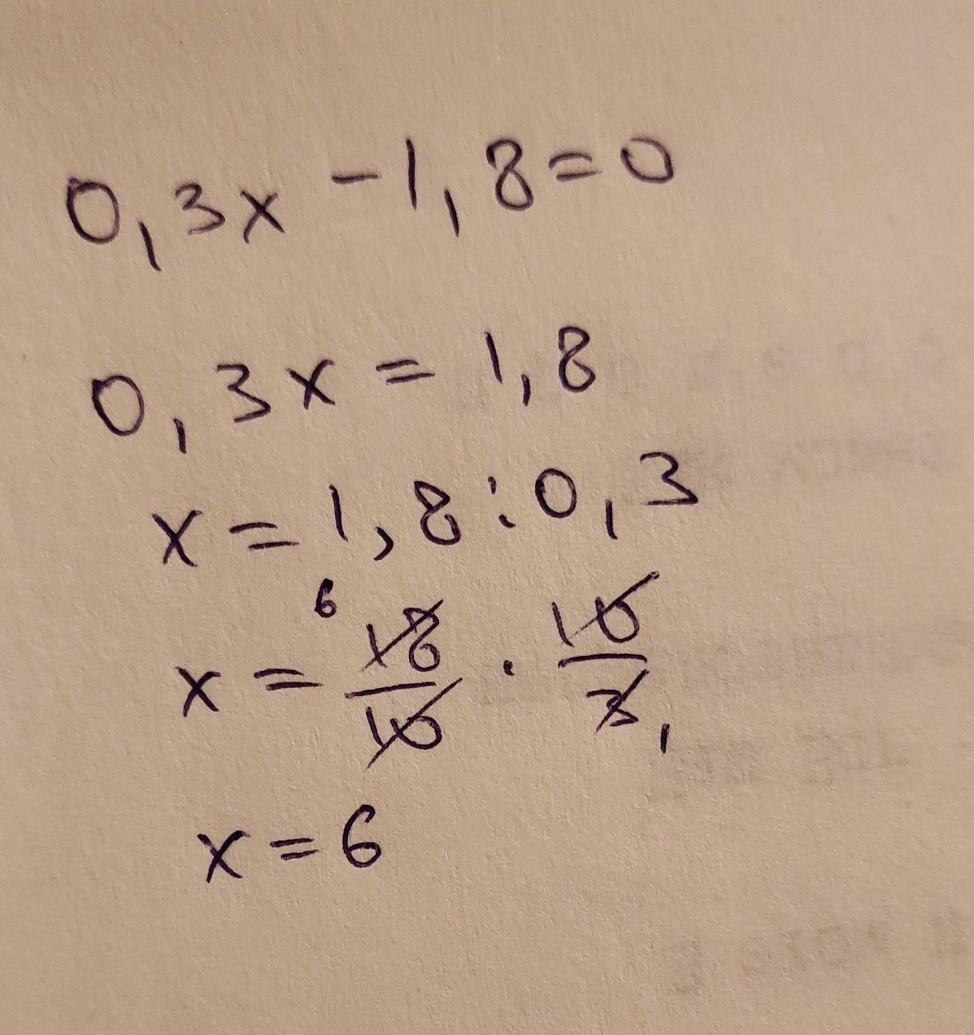 0,3x - 1,8 = 0
0,3x = 1,8
x = 1,8 : 0,3
x = 18/10 · 10/3 6 1
x = 6